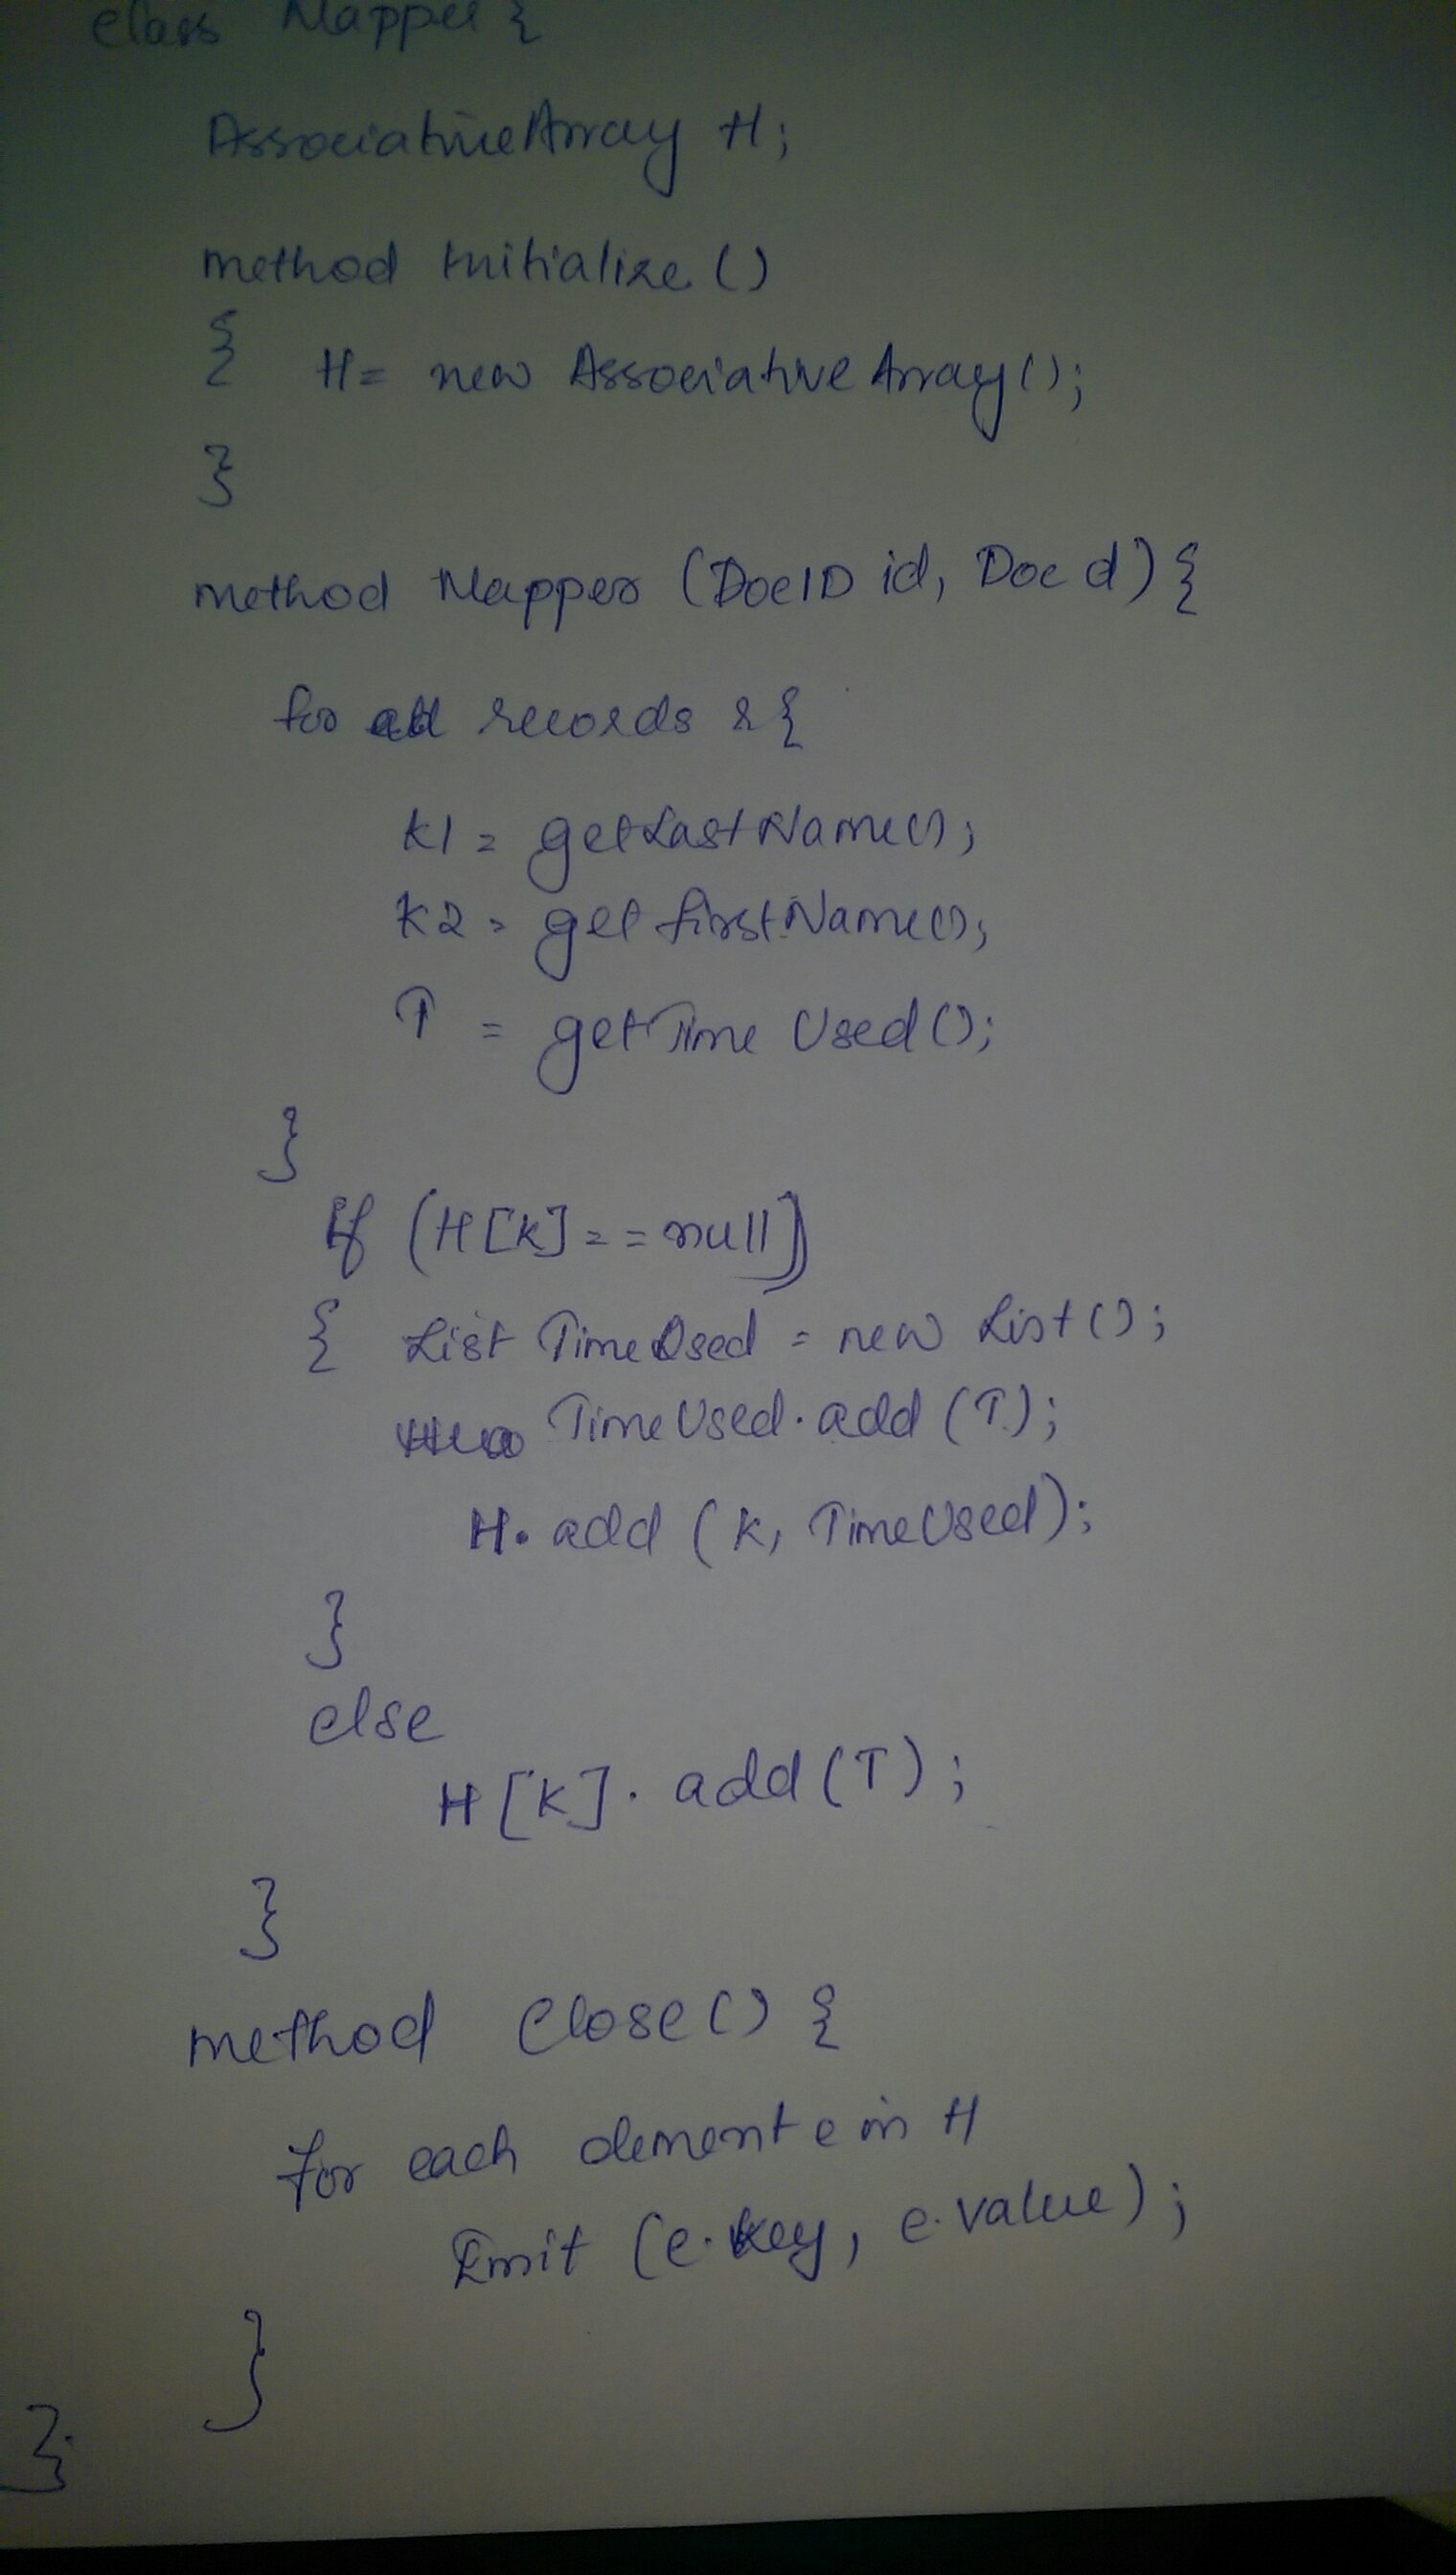 class Mapper {
AssociativeArray H;
method Initialize ()
{ H = new AssociativeArray();
}
method Mapper (DocID id, Doc d) {
for all records r {
K1 = getLastName();
K2 = getfirstName();
T = getTime Used();
}
If (H[K] == null)
{ List TimeUsed = new List();
TimeUsed.add (T);
H.add (K, TimeUsed);
}
else
H[K].add(T);
}
method Close() {
for each element e in H
Emit (e.key, e.value);
}
}